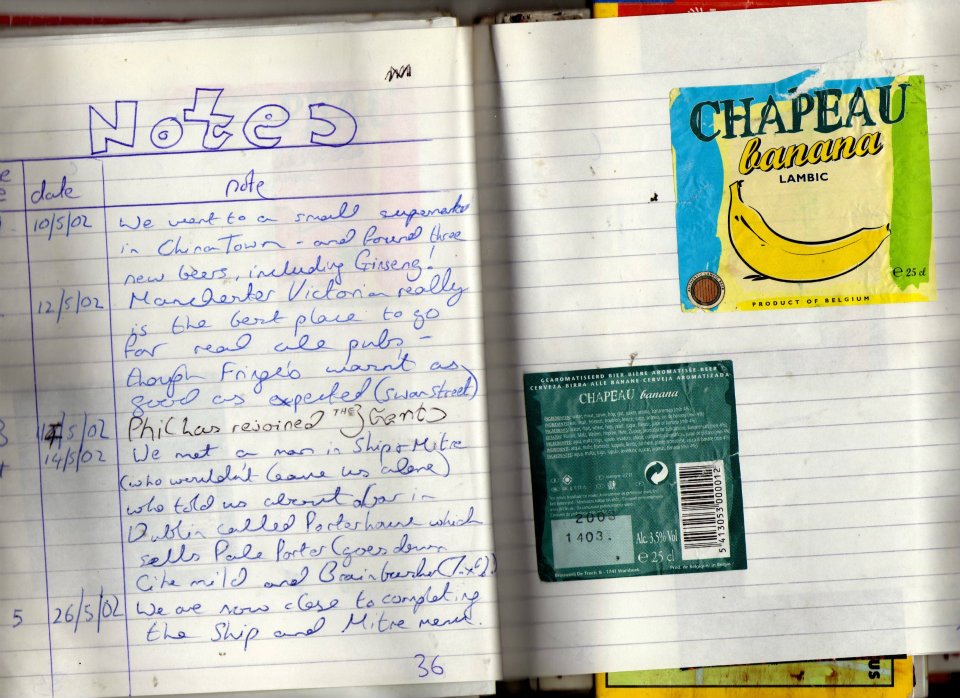 Notes
date note
10/5/02 We went to a small supermarket
in ChinaTown - and found three
new beers, including Ginseng!
12/5/02 Manchester Victoria really
is the best place to go
for real ale pubs -
though Fringe's wasn't as
good as expected (swan street)
14/5/02 Phil has rejoined THE 3 Gents
14/5/02 We met a man in Ship & Mitre
(who wouldn't leave us alone)
who told us about a bar in
Dublin called Porterhouse which
sells Pale Porter (goes down
like mild and Brainbusher
5 26/5/02 We are now close to completing
the Ship and Mitre menu.
36
CHAPEAU
banana
LAMBIC
e 25 cl
PRODUCT OF BELGIUM
GEAROMATISEERD BIER-BIERE AROMATISEE-BEER
CERVEZA-BIRRA ALLE BANANE-CERVEJA AROMATIZADA
CHAPEAU banana
2003
1403.
Alc 3,5% Vol
e 25 cl
5 413053 000012
Brouwerij De Troch B - 1741 Wambeek
Prod. de Belgique